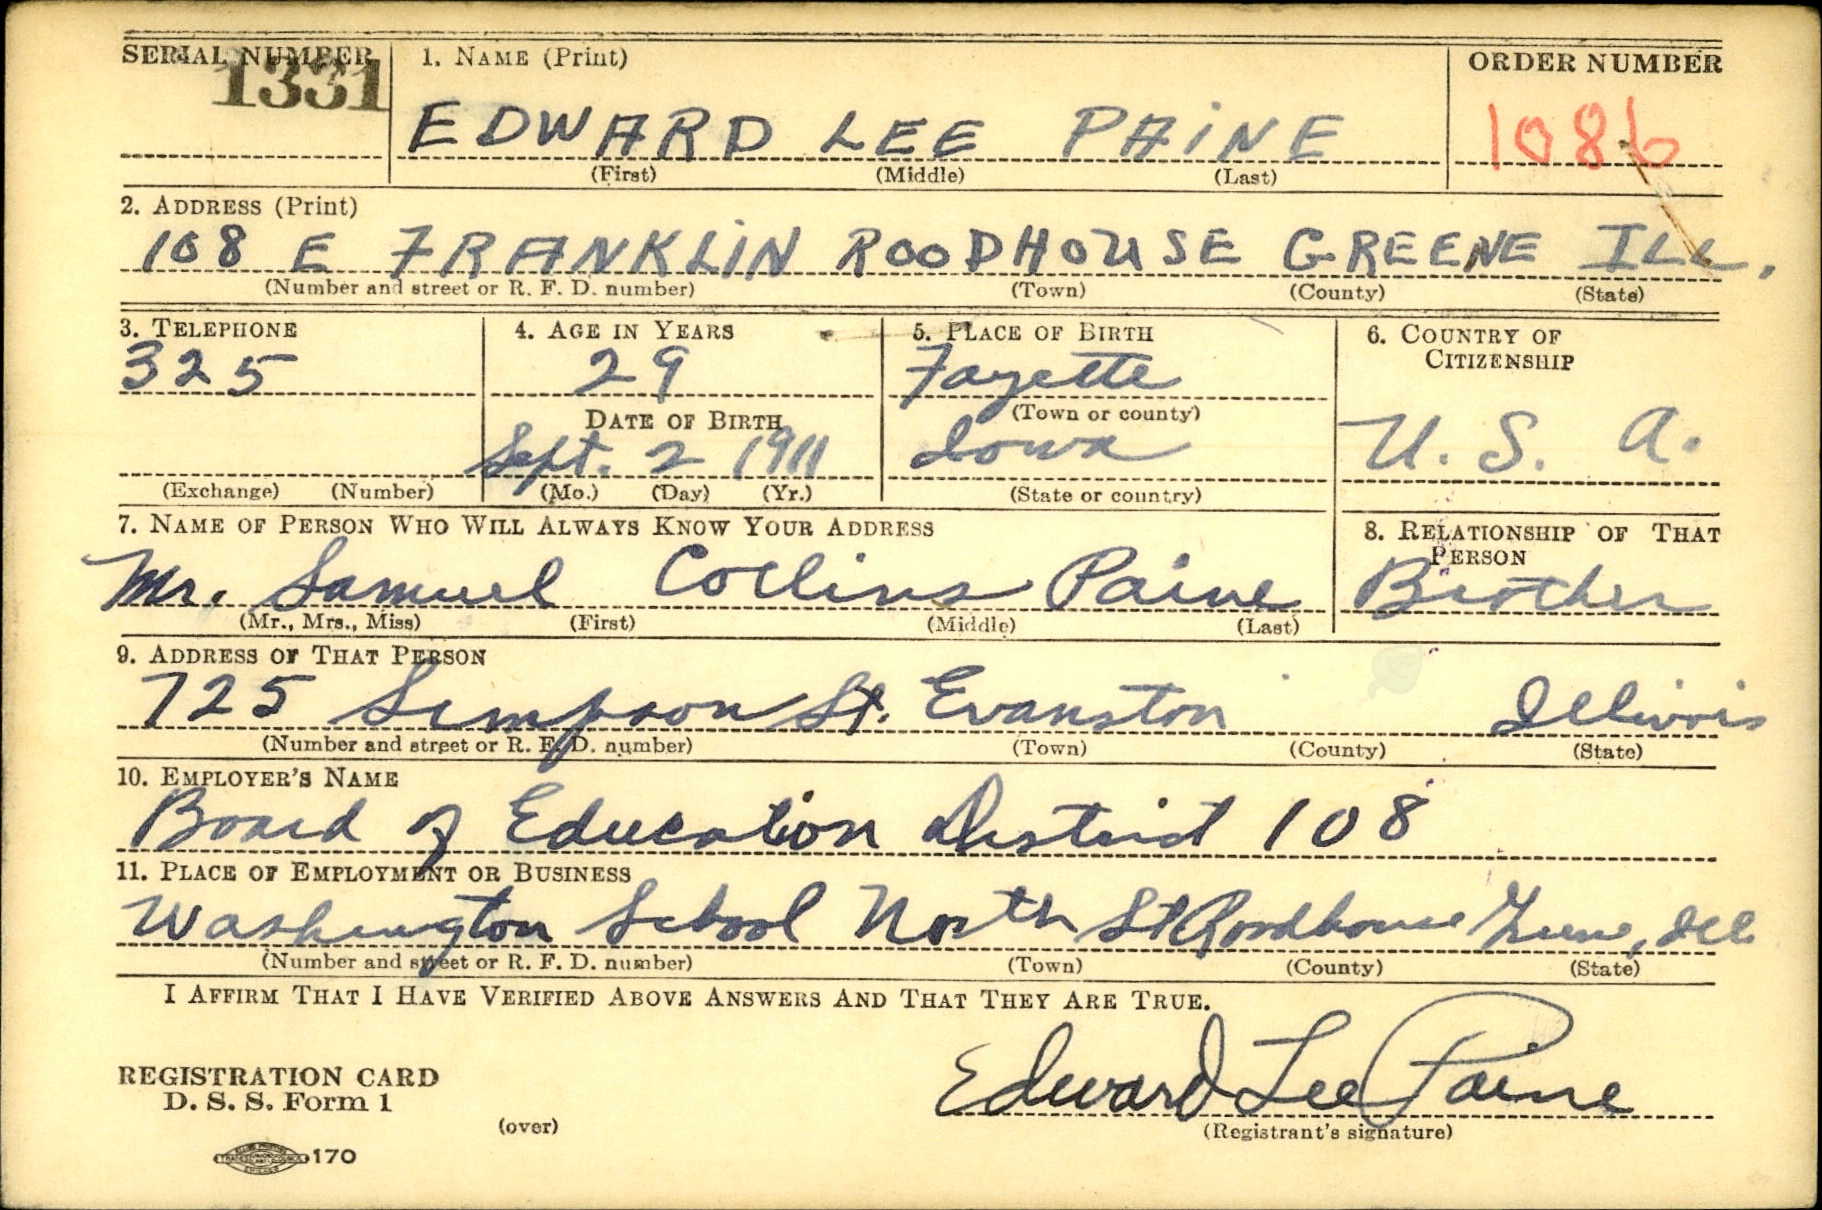 SERIAL NUMBER 1. NAME (Print) ORDER NUMBER
1331 EDWARD LEE PAINE 1086
(First) (Middle) (Last)
2. ADDRESS (Print)
108 E FRANKLIN ROODHOUSE GREENE ILL.
(Number and street or R. F. D. number) (Town) (County) (State)
3. TELEPHONE 4. AGE IN YEARS 5. PLACE OF BIRTH 6. COUNTRY OF CITIZENSHIP
325 29 Fayette
DATE OF BIRTH (Town or county)
Sept. 2 1911 Iowa U. S. A.
(Exchange) (Number) (Mo.) (Day) (Yr.) (State or country)
7. NAME OF PERSON WHO WILL ALWAYS KNOW YOUR ADDRESS 8. RELATIONSHIP OF THAT PERSON
Mr. Samuel Collins Paine Brother
(Mr., Mrs., Miss) (First) (Middle) (Last)
9. ADDRESS OF THAT PERSON
725 Simpson St. Evanston Illinois
(Number and street or R. F. D. number) (Town) (County) (State)
10. EMPLOYER'S NAME
Board of Education District 108
11. PLACE OF EMPLOYMENT OR BUSINESS
Washington School North St Roodhouse Greene, Ill.
(Number and street or R. F. D. number) (Town) (County) (State)
I AFFIRM THAT I HAVE VERIFIED ABOVE ANSWERS AND THAT THEY ARE TRUE.
Edward Lee Paine
(Registrant's signature)
REGISTRATION CARD
D. S. S. Form 1
(over)
170